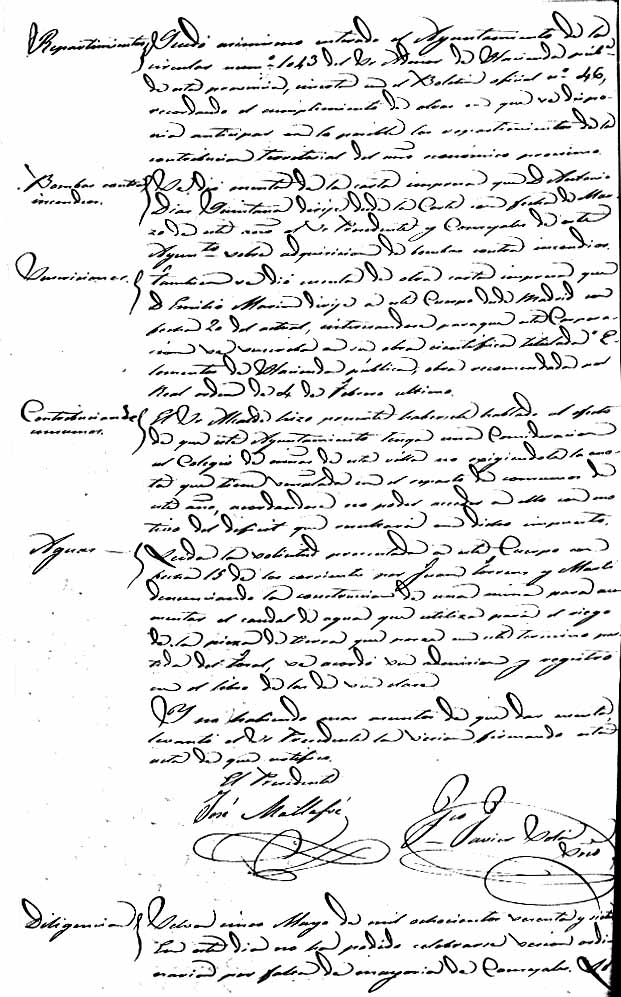 Repartimientos Quedó asimismo enterado el Ayuntamiento de la
circular num.º 1043 del Sr Admor de Hacienda públi-
de esta provincia, inserta en el Boletin oficial nº 46,
recordando el cumplimiento de otras en que se dispo-
nia anticipar en lo posible los repartimientos de la
contribucion territorial del año economico proximo.
Bombas contra Se dió cuenta de la carta impresa que D. Antonio
incendios. Dias Quintana dirige desde la Corte con fecha de Mar-
zo de este año al Sr Presidente y Concejales de este
Ayunt.to sobre adquisicion de bombas contra incendios.
Suscriciones. Tambien se dió cuenta de otra carta impresa que
D. Emilio Maria dirige a este Cuerpo desde Madrid con
fecha 20 del actual, interesandose para que esta Corpora-
cion se suscriba a su obra cientifica titulada "E-
lementos de Hacienda pública", obra recomendada por
Real orden de 4 de Febrero ultimo.
Contribucion de El Sr Alcalde hizo presente habersele hablado al efecto
consumos. de que este Ayuntamiento tenga una Consideracion
al Colegio de de esta villa no exigiendole la cuo-
ta que tiene señalada en el reparto de consumos de
este año, acordandose no poder acceder a ello con mo-
tivo del deficit que resultaria en dicho impuesto.
Aguas Leida la solicitud presentada a este Cuerpo con
fecha 15 de los corrientes por Juan Torrens y Martí
denunciando la construccion de una mina para au-
mentar el caudal de agua que utiliza para el riego
de la pieza de tierra que posee en este termino par-
tida del se acordó su admision y registro
en el libro de los de su clase
Y no habiendo mas asuntos de que dar cuenta,
levantó el Sr Presidente la sesion firmando esta
acta de que certifico.
El Presidente
José Mallafré
Javier Solá
Srio
Diligencia Selva cinco Mayo de mil ochocientos noventa y siete
En este dia no ha podido celebrarse sesion ordi-
naria por falta de mayoria de Concejales.